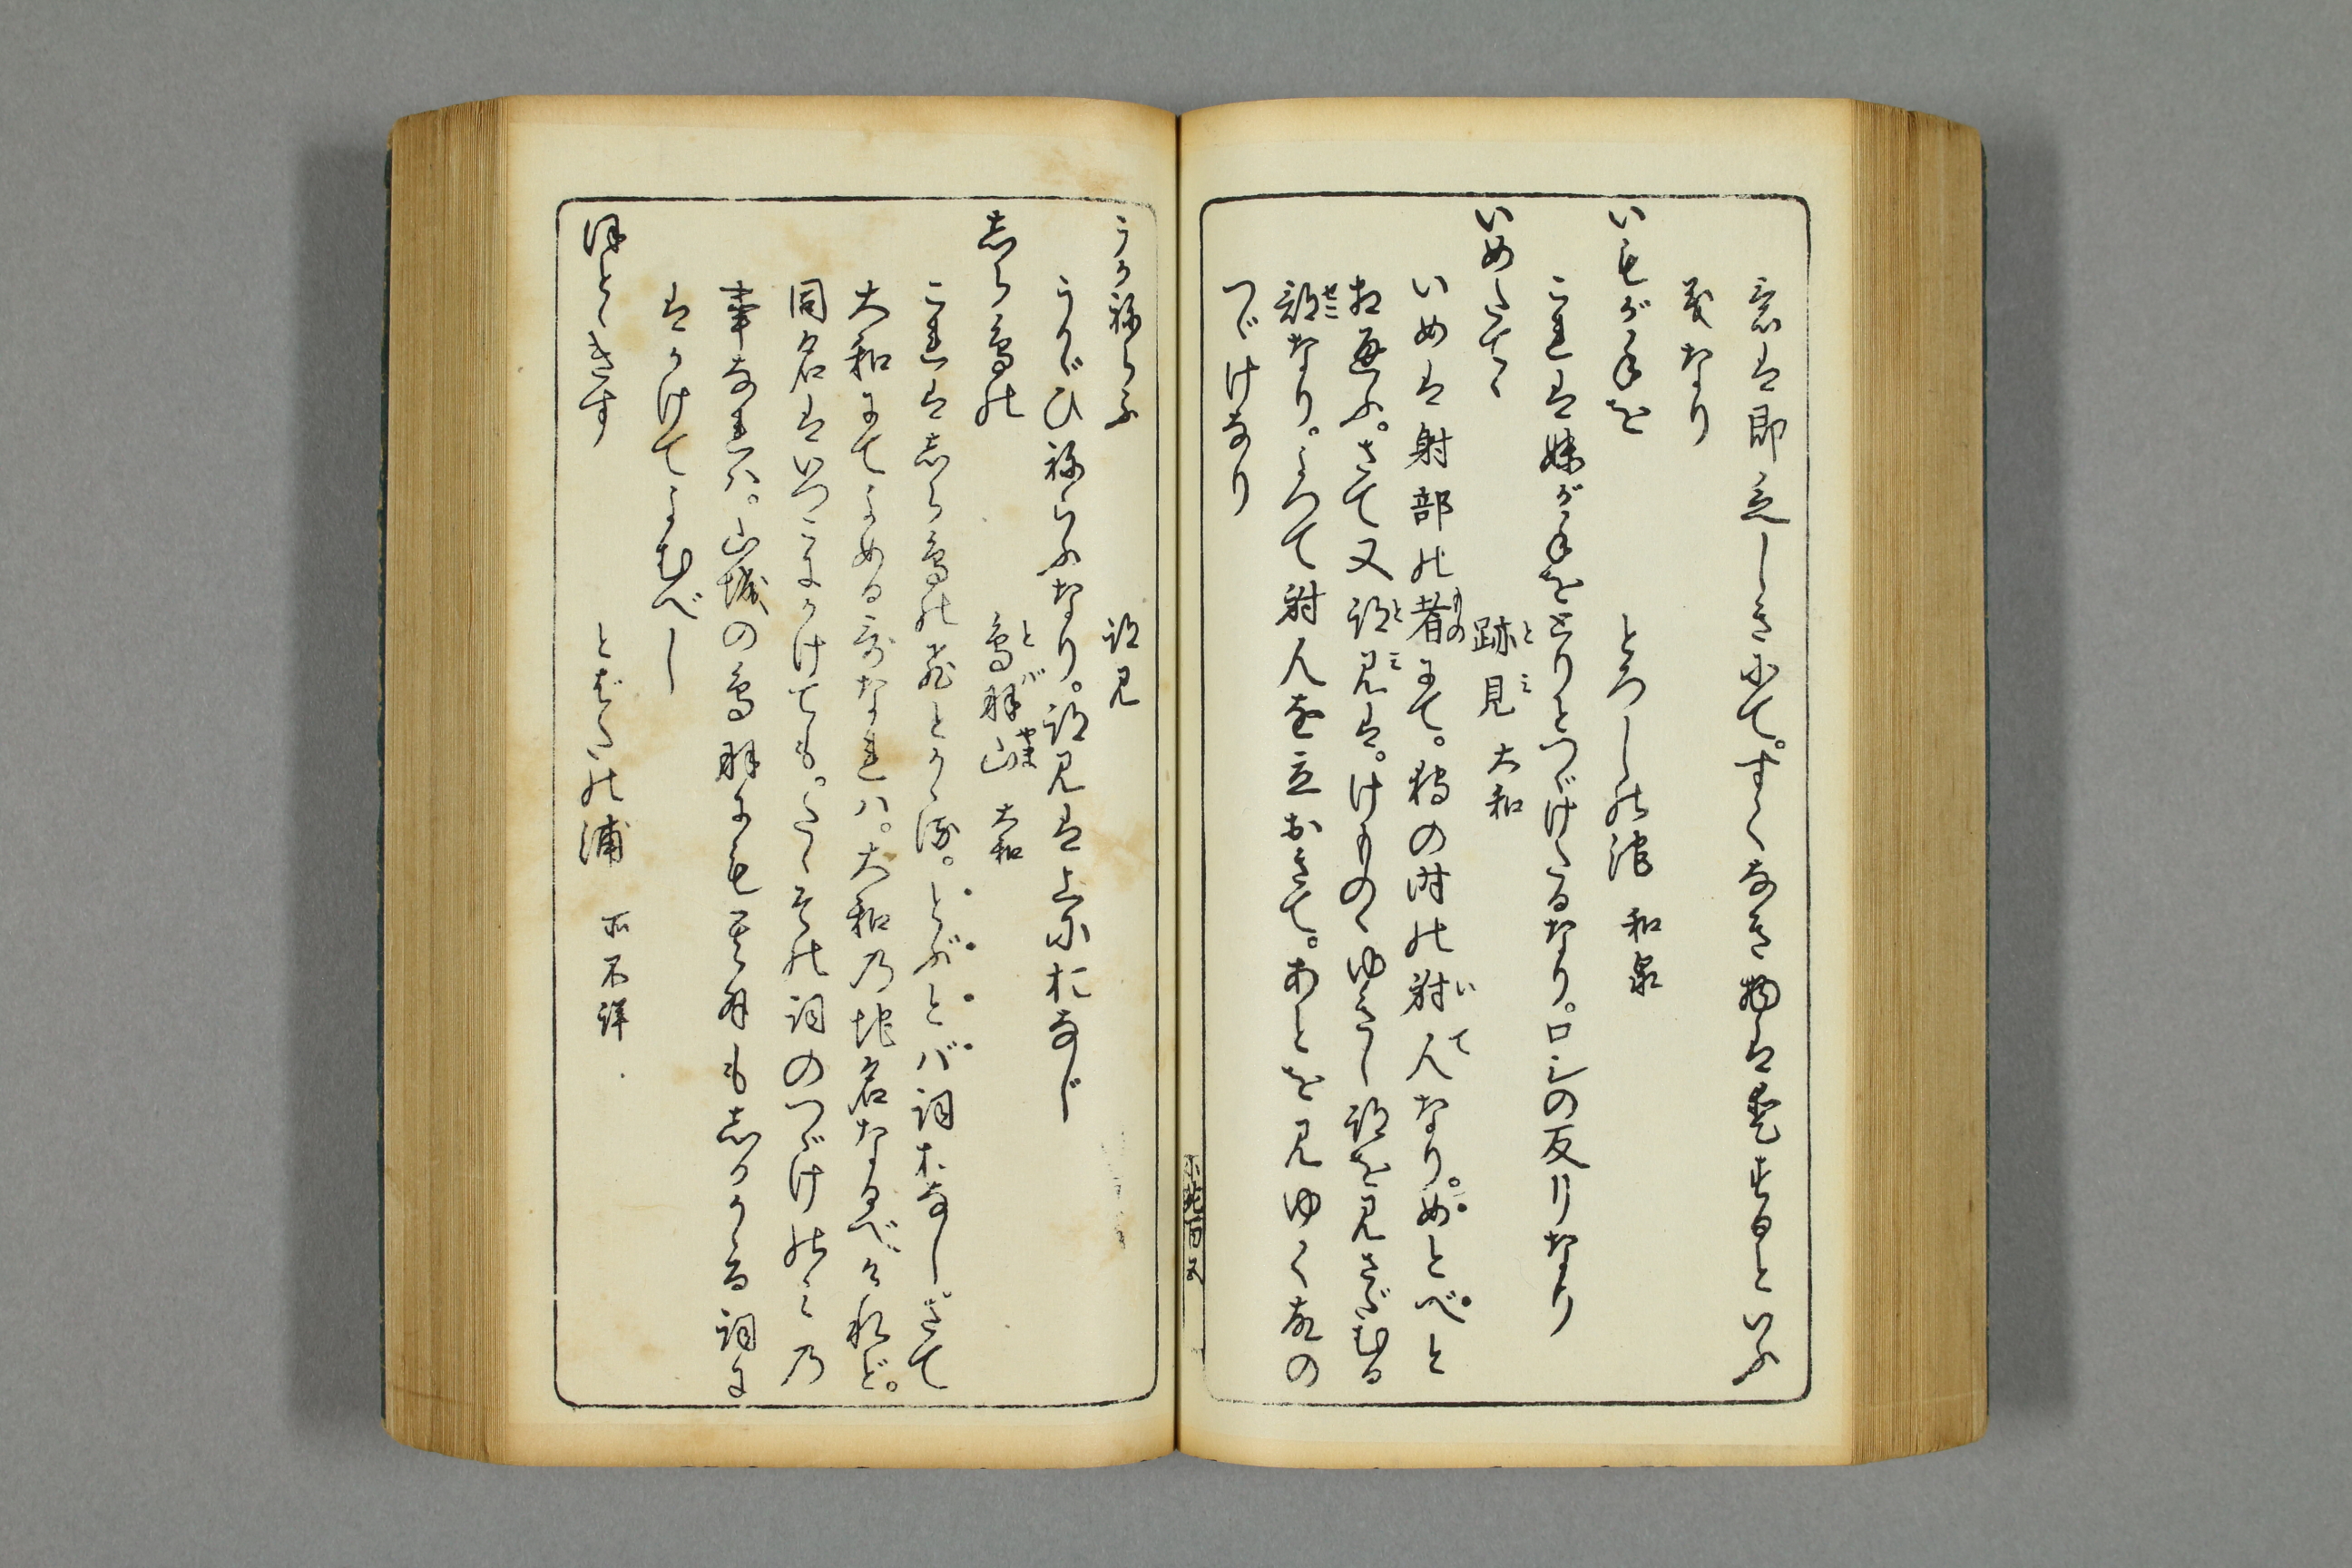 意は即急しきにて。すくなき物は飛去るといふ
義なり
いもが手を　とろしの池　和泉
これは妹が手をとりとつゞけたるなり。ロシの反リなり
いめたてゝ　跡見　大和
いめは射部の者にて。狩の時の射人なり。めとべと
相通ふ。さて又跡見は。けものゝゆきし跡を見さだむる
なり。よつて射人を立おきて。あとを見ゆく意の
つゞけなり
うかねらふ　跡見
うかゞひねらふなり。跡見は上におなじ
しら鳥の　鳥羽山　大和
これはしら鳥の飛とかゝる。とぶとバ詞おなじ。さて
大和にてよめる哥なれハ。大和乃地名なるべけれど。
同名はいづこにかけても。たゝその詞のつゞけのミ乃
事なれハ。山城の鳥羽にも　も志かかゝる詞に
はかけてよむべし
ほとゝきす　とばたの浦　所不詳